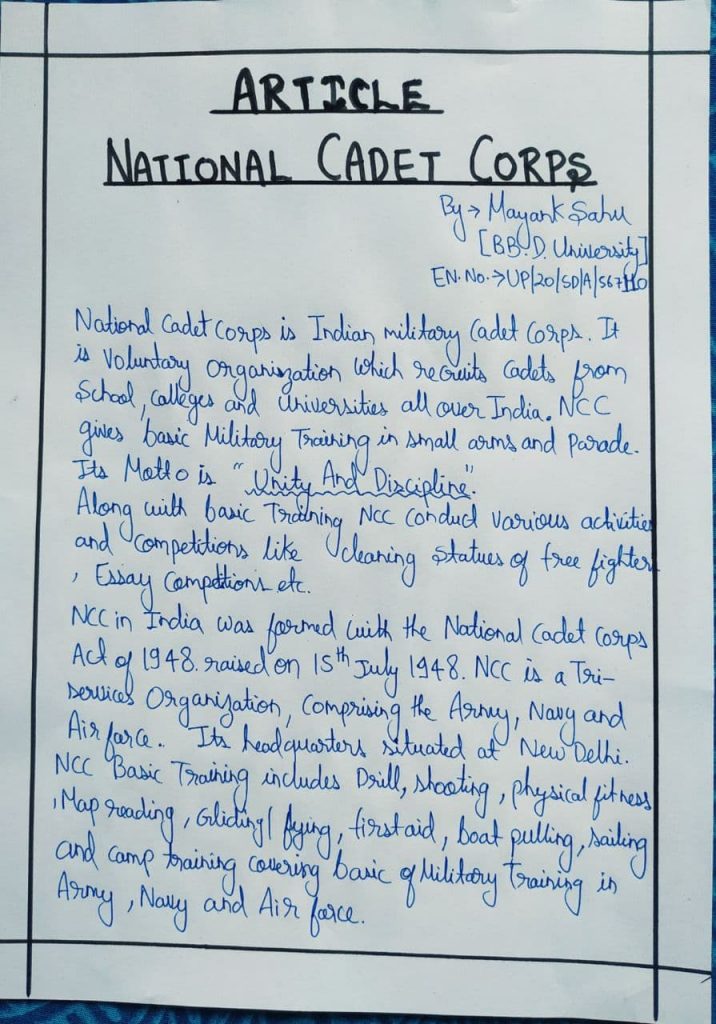 ARTICLE
NATIONAL CADET CORPS
By → Mayank Sahu
[B.B.D. University]
EN.No.→UP/20/SD/A/567110
National Cadet Corps is Indian military Cadet Corps. It
is Voluntary Organization which recruits Cadets from
School, Colleges and Universities all over India. NCC
gives basic Military Training in small arms and Parade.
Its Motto is "Unity And Discipline".
Along with basic Training NCC Conduct various activities
and Competitions like cleaning Statues of free fighters
, Essay Competitions etc.
NCC in India was formed with the National Cadet Corps
Act of 1948. raised on 15th July 1948. NCC is a Tri-
services Organization, Comprising the Army, Navy and
Air force. Its headquarters situated at New Delhi.
NCC Basic Training includes Drill, shooting, physical fitness
, Map reading, Gliding/ flying, first aid, boat pulling, sailing
and camp training covering basic of Military Training in
Army, Navy and Air force.